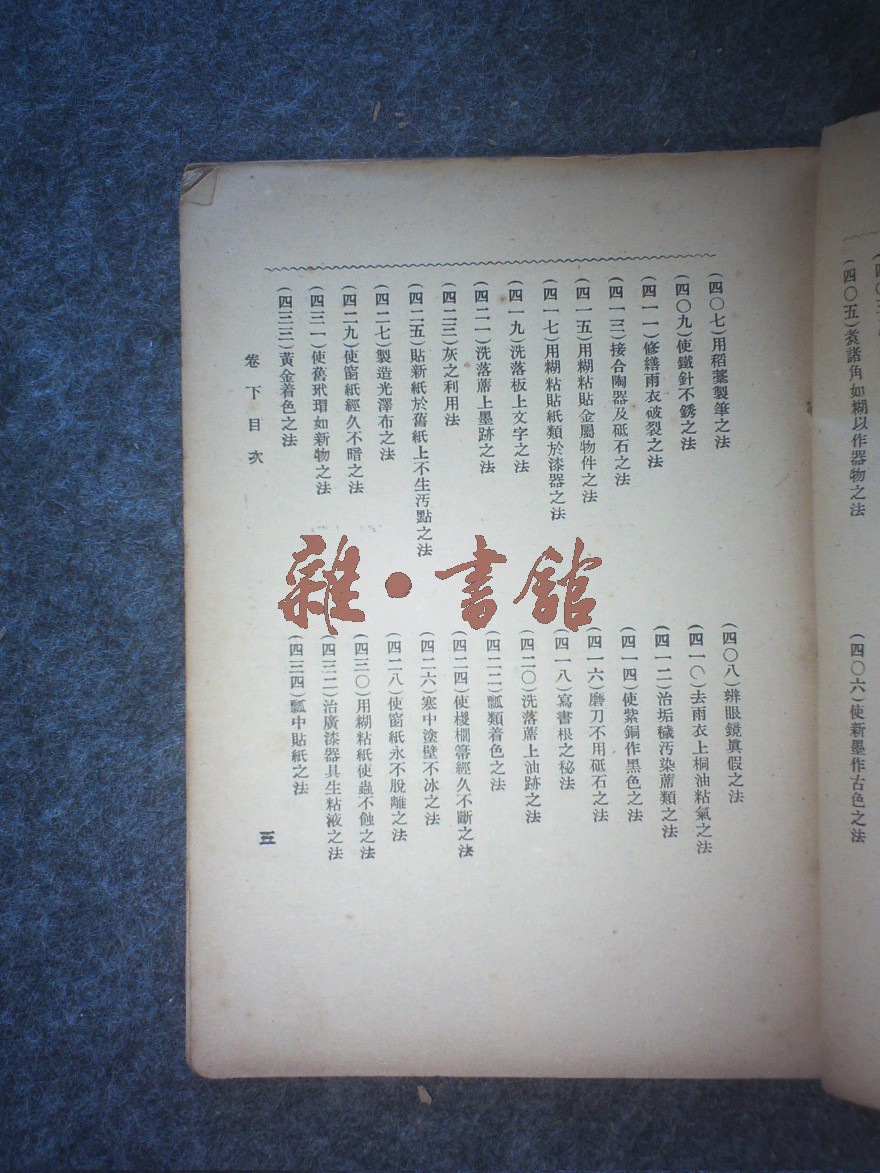 (四〇五)煮諸角如糊以作器物之法
(四〇六)使新墨作古色之法
(四〇七)用稻藁製筆之法
(四〇八)辨眼鏡眞假之法
(四〇九)使鐵針不銹之法
(四一〇)去雨衣上桐油粘氣之法
(四一一)修繕雨衣破裂之法
(四一二)治垢穢汚染蓆類之法
(四一三)接合陶器及砥石之法
(四一四)使紫銅作黑色之法
(四一五)用糊粘貼金屬物件之法
(四一六)磨刀不用砥石之法
(四一七)用糊粘貼紙類於漆器之法
(四一八)寫書根之秘法
(四一九)洗落板上文字之法
(四二〇)洗落蓆上油跡之法
(四二一)洗落蓆上墨跡之法
(四二二)瓢類着色之法
(四二三)灰之利用法
(四二四)使棧櫚箒經久不斷之法
(四二五)貼新紙於舊紙上不生汚點之法
(四二六)寒中塗壁不冰之法
(四二七)製造光澤布之法
(四二八)使窗紙永不脫離之法
(四二九)使窗紙經久不暗之法
(四三〇)用糊粘紙使蟲不蝕之法
(四三一)使舊玳瑁如新物之法
(四三二)治廣漆器具生粘液之法
(四三三)黃金着色之法
(四三四)瓢中貼紙之法
卷下目次
三
雜·書館